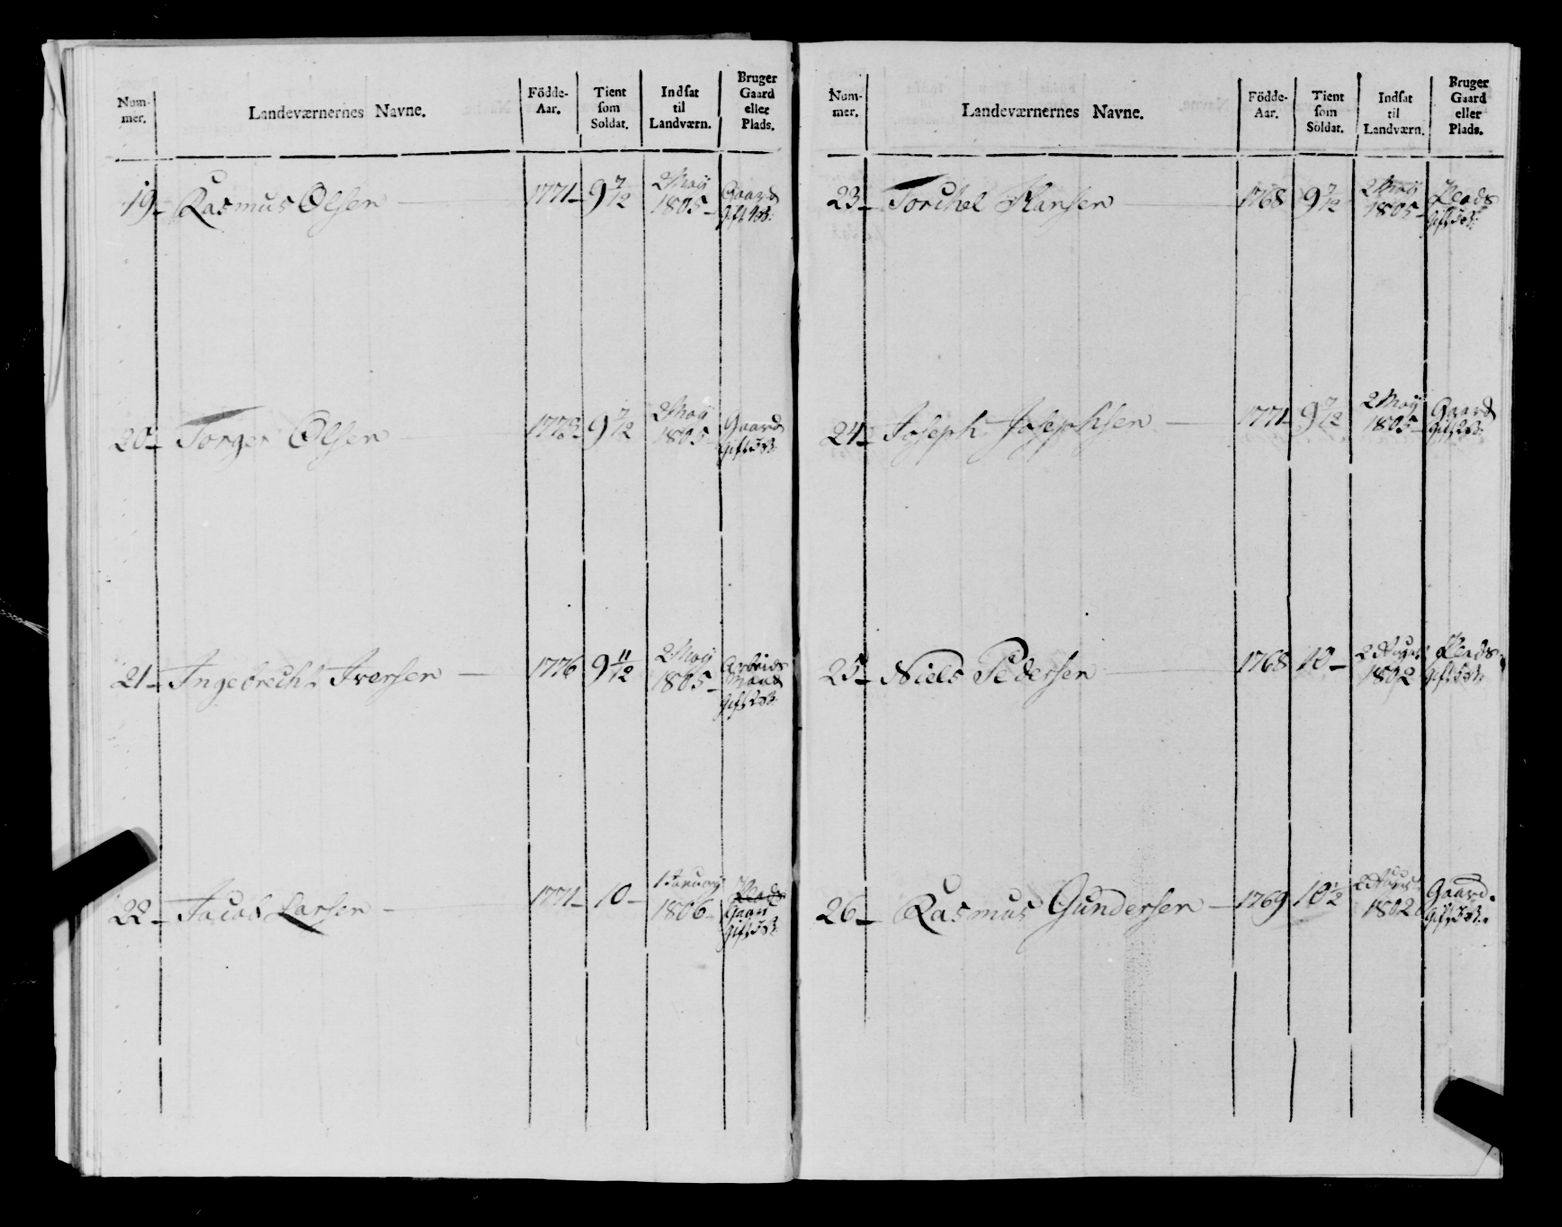 Num-
mer.
Landeværnernes Navne.
Födde-
Aar.
Tient
som
Soldat.
Indsat
til
Landværn.
Bruger
Gaard
eller
Plads.
19- Rasmus Olsen 1771- 9 7/12 2 May 1805- Gaard
20- Torger Olsen 9 7/12 2 May 1805 Gaard
21- Ingebrecht Iversen 1776 9 11/12 2 May 1805- Arbeids Mand
22- Jacob Larsen 1771- 10- 1 January 1806- Gaard
Num-
mer.
Landeværnernes Navne.
Födde-
Aar.
Tient
som
Soldat.
Indsat
til
Landværn.
Bruger
Gaard
eller
Plads.
23- Torchel Hansen 1768 9 7/12 2 May 1805- Plads
24- Joseph Josephsen 1771- 9 7/12 2 May 1805- Gaard
25- Niels Pedersen 1768 10- 1802 Plads
26- Rasmus Gundersen 1769 10 1/2 1802 Gaard.